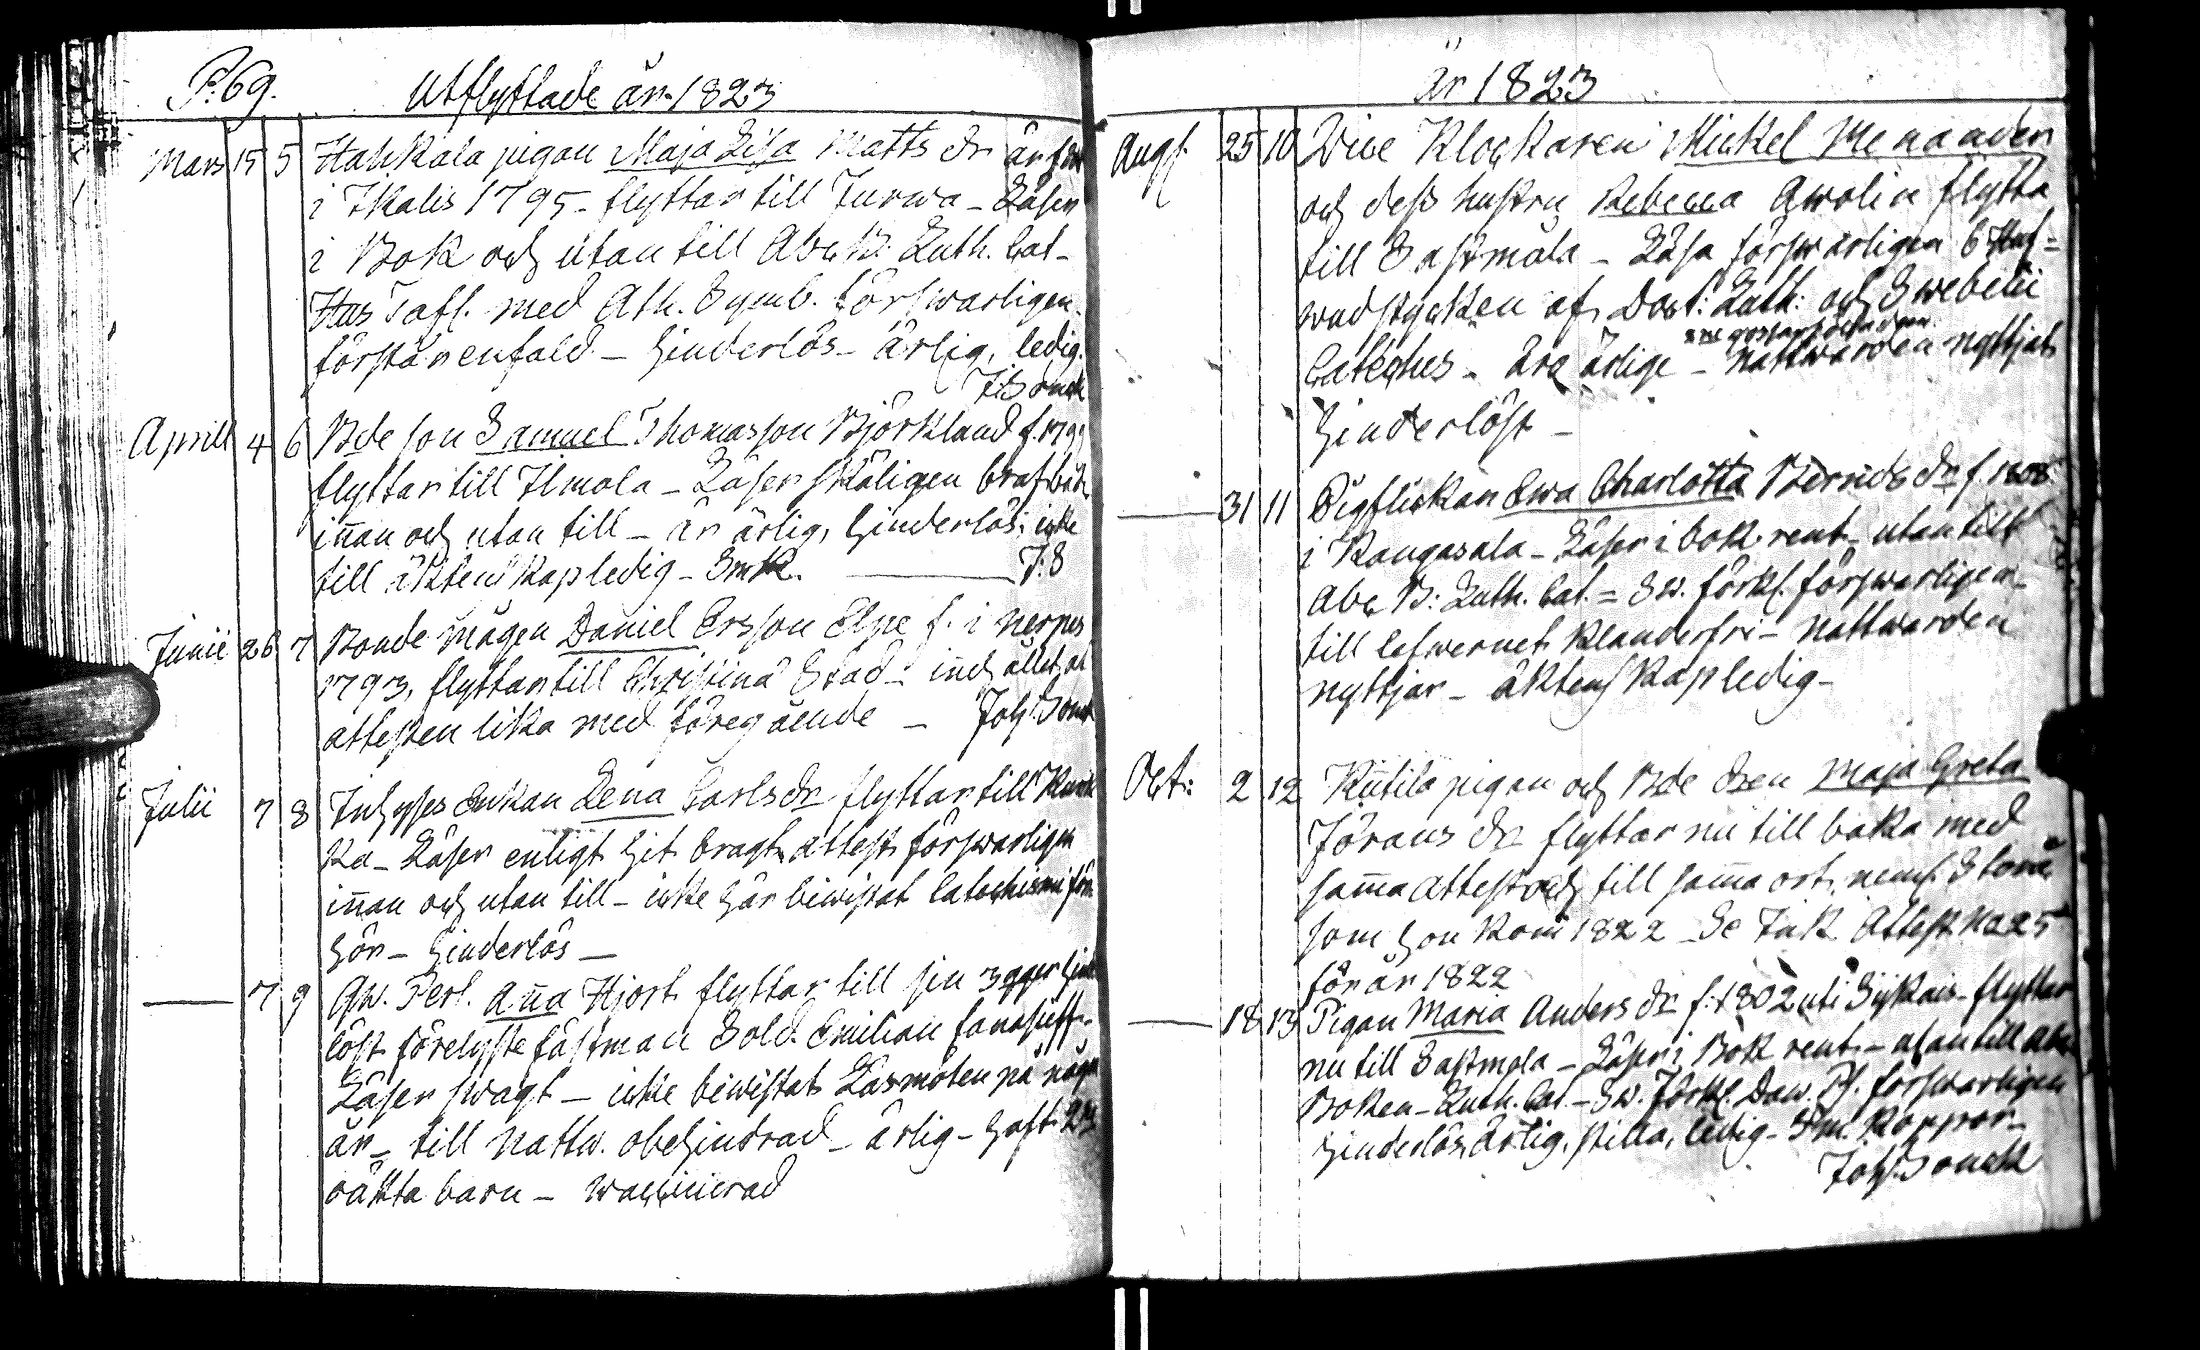 P. 69. Utflyttade år 1823
Mars 15 5 Hahkala pigan Maja Lisa Matts dr är född
i Ikalis 1795 - flyttar till Jurwa - Läser
i Bok och utan till Abc B: Luth. Cat-
Hus Tafl. med Ath. Symb. försvarligen
förstår enfald - hinderlös - ärlig, ledig.
J Sonck
Aprill 4 6 Bde son Samuel Thomasson Björklund f. 1799
flyttar till Ilmola - Läser skäligen
iñan och utan till - är ärlig, hinderlös: icke
till äktenskap ledig - Smk. J. S
Junii 26 7 Bonde mågen Daniel Ersson Elge f. i Nerpes
1793, flyttar till Christina Stad -
attesten lika med föregående - Joh. Sonck
Julii 7 8 Inhyses Enkan Lena Carls dr flyttar till
ka - Läser enligt hit bragt attest försvarligen
iñan och utan till - icke här bewistat Catechismi för
hör - hinderlös -
7 9 Gw. Perl. Aña Hjort flyttar till sin 3 gger hinder
löst förelyste fästman Sold. Emilian
Läser swagt - icke bewistat Läsmöten på några
år - till Nattw. obehindrad - ärlig - haft 2
oäkta barn - waccinerad
år 1823
Augs. 25 10 Vice Klockaren Mickel Menander
och dess hustru Rebecca Awolin flytta
till Sastmola - Läsa försvarligen 6 Huf=
wudstycken af Doct: Luth: och Swebelii
Cateches - ära ärlige - Nattwarden nyttjat
hinderlöst -
31 11 Pigflickan Ewa Charlotta Bernds dr f. 1808
i Kangasala - Läser i bok rent - utan till
Abc B: Luth. Cat. = Sw. förkl. försvarligen -
till lefwernet klanderfri - Nattwarden
nyttjar - äktenskap ledig -
Oct: 2 12 Kütilä pigan och Bde dren Maja Greta
Jörans dr flyttar nu till baka med
sam̃a attest och till sam̃a ort, neml. Storå
som hon kom̃ 1822 - Se Ink. Attest No 25
för år 1822
18 13 Pigan Maria Anders dr f. 1802 uti Sijkais - flyttar
nu till Sastmola - Läser i Bok rent - utan till Abc
Boken - Luth. Cat. - Sw. Förkl. Daw. Ps. försvarligen
hinderlös, ärlig, stilla, ledig - Sm. koppor -
Joh. Sonck